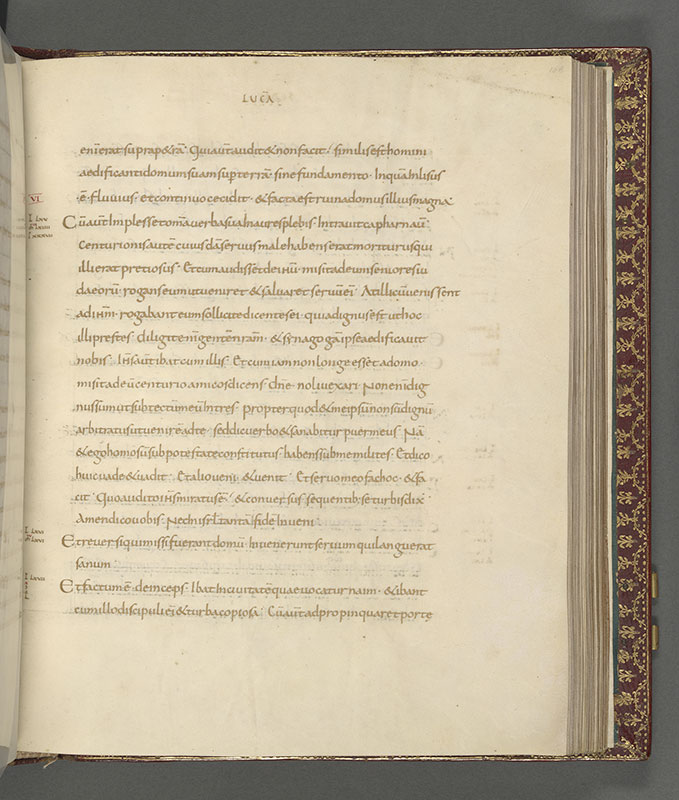 LUCĀ
VI
enī erat supra p&rā Qui aūt audit & non facit similis est homini
aedificanti domum suam sup terrā sine fundamento Inquā Inlisus
ē fluvius et continuo cecidit & facta est ruina domus illius magna
Cū aūt Implesset omā verba sua In aures plebis Intravit capharnaū
Centurionis autē cuiusdā servus male habens erat moriturus qui
illi erat pretiosus Et cum audiss& de ihū misit ad eum seniores iu
daeorū rogans eum ut veniret & salvaret servū eī At illi cū venissent
ad ihm rogabant eum sollicite dicentes ei quia dignus est ut hoc
illi prestes diligit enī gentē nrām & synagogā ipse aedificavit
nobis Ihs aūt ibat cum illis Et cum iam non longe ess& a domo
misit ad eū centurio amicos dicens dn̄e noli vexari Non enī dig
nus sum ut sub tectum meū Intres propter quod & me ipsū non sū dignū
arbitratus ut venirē ad te sed dic verbo & sanabitur puer meus Nā
& ego homo sū sub potestate constitutus habens sūb me milites Et dico
huic vade & vadit Et alio veni & venit Et servo meo fac hoc & fa
cit Quo audito ihs miratus ē & conversus sequentib; se turbis dix̄
Amen dico vobis Nec In isrl tantā fidē Inveni
Et reversi qui missi fuerant domū Invenerunt servum qui languerat
sanum
Et factum ē deinceps Ibat In civitatē quae vocatur naim & ibant
cum illo discipuli eī & turba copiosa Cū aūt adpropinquaret porte